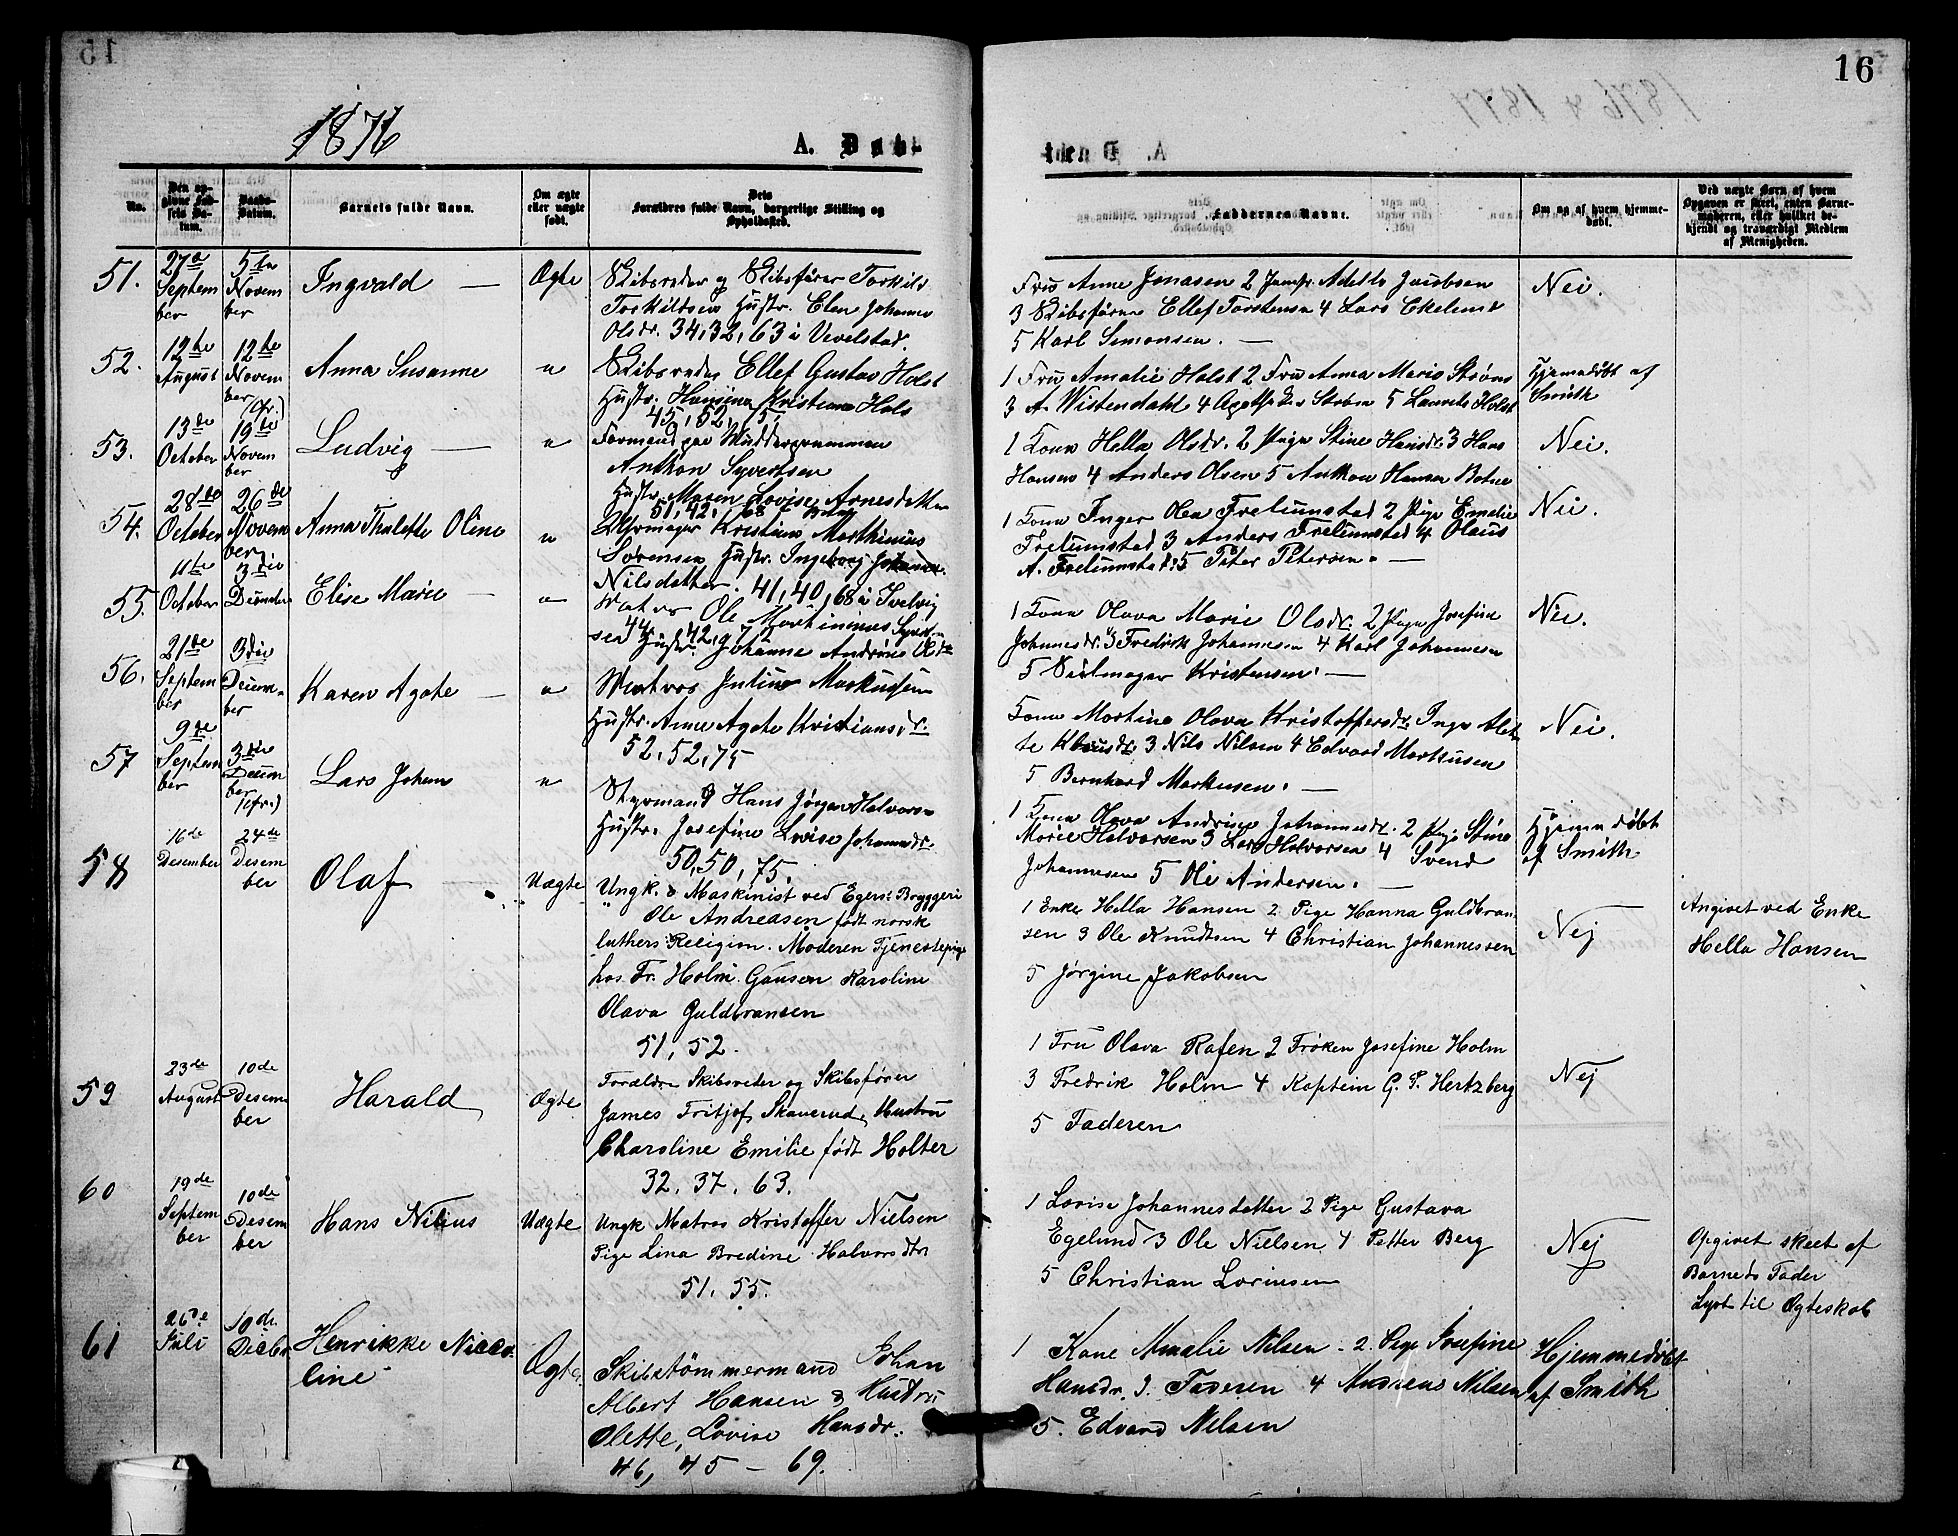 16
1876
A. Døbt
No.
Den opgivne Fødsels Datum.
Daabs-Datum.
Barnets fulde Navn.
Om ægte eller uægte født.
Dets Forældres fulde Navn, borgerlige Stilling og Opholdssted.
Faddernes Navne.
Om og af hvem hjemmedøbt.
Ved uægte Børn af hvem Opgaven er skeet, enten Barnemoderen, eller hvilket bekjendt og troværdigt Medlem af Menigheden.
51.
27de September
5te November
Ingvald —
Ægte
Skibsreder og Skibsfører Torkild
Torkildsen Hustr. Elen Johanne
Olsdr. 34, 32, 63 i Vevelstad.
Fru Anne Jonasen 2 Jomfr. Adelle Jacobsen
3 Skibsfører Ellef Torstensen 4 Lars Ekelund
5 Karl Simonsen. —
Nei.
52.
12te August
12te November
Anna Susanne
"
Skibsreder Ellef Gustav Holst
Hustr. Hansine Kristiane Hals
45, 52, 75
1 Fru Amalie Holst 2 Fru Anna Marie Strøm
3 A. Wistendahl 4 5 Laurits Holst
Hjemmedøbt af
Smith
53.
13de October
(fr.)
19de November
Ludvig —
"
Formand paa Muddeprammen
Anthon Syvertsen
Hustr. Maren Lovise Arnesd.
51, 42, 68
1 Kone Hella Olsdr. 2 Pige Stine Hansdr. 3 Hans
Hansen 4 Anders Olsen 5 Anthon Hansen Batne
Nei.
54.
28de October
26de November
Anna Thalette Oline
"
Kristian Marthinius
Sørensen Hustr. Ingeborg Johanne
Nilsdatter. 41, 40, 68 i Svelvig
1 Kone Inger Olea Frelumstad 2 Pige Emelie
Frelumstad 3 Anders Frelumstad 4 Olaus
A. Frelumstad 5 Peter Petersen. —
Nei.
55.
11te October
3die December
Elise Marie —
"
Matros Ole Marthinius Syvertsen
Hustr. Johanne Andrine Olsdr
44, 42, 72
1 Kone Olava Marie Olsdr. 2 Pige Josefine
Johannesdr. 3 Fredrik Johannesen 4 Karl Johannesen
5 Seilmager Kristensen. —
Nei.
56.
21de September
3die December
Karen Agate —
"
Matros Julius Markussen
Hustr. Anne Agate Kristiansdr.
52, 52, 75
Kone Martine Olava Kristoffersdr. Inge
3 Nils Nilsen 4 Edvard Markusen
5 Bernhard Markusen. —
Nei.
57
9de September
3die December
(fr.)
Lars Johan
"
Styrmand Hans Jørgen Halvorsen
Hustr. Josefine Lovise Johannesdr.
50, 50, 75.
1 Kone Olava Andrine Johannesdr. 2 Pige Stine
Marie Halvorsen 3 Lars Halvorsen 4 Svend
Johannesen 5 Ole Andersen. —
Hjemmedøbt
af Smith
58
16de Desember
24de Desember
Olaf —
Uægte
Ungk. & Maskinist ved Egers. Bryggeri
Ole Andreasen født norsk
luthers Religion. Moderen Tjenestepige
hos Fr. Holm. Gausen Karoline
Olava Guldbransen
51, 52.
1 Enke Hella Hansen 2 Pige Hanna Guldbransen
3 Ole Knudtsen 4 Christian Johannessen
5 Jørgine Jakobsen
Nej
Angivet ved Enke
Hella Hansen
59
23de August
10de Desember
Harald
Ægte
Forældre Skibsreder og Skibsfører
James Fritjof Skaverud, Hustru
Charoline Emilie født Holter
32. 37. 63.
1 Fru Olava Rafen 2 Frøken Josefine Holm
3 Fredrik Holm 4 Kaptein G. P. Hertzberg
5 Faderen
Nej
60
19de September
10de Desember
Hans Nilius
Uægte
Ungk Matros Kristoffer Nielsen
Pige Lina Bredine Halvorsdtr
51. 55.
1 Lovise Johannesdatter 2 Pige Gustava
Egelund 3 Ole Nielsen 4 Petter Berg
5 Christian Lorinsen
Nej
Opgivet skeet af
Barnets Fader
Lyst til Ægteskab
61
26de Juli
10de Decbr
Henrikke Nicoline
Ægte
Skibstømmermand Johan
Albert Hansen & Hustru
Olette, Lovise Hansdr.
46, 45 — 69.
1 Kone Amalie Nilsen - 2. Pige Josefine
Hansdr. 3. Faderen 4 Andreas Nilsen
5. Edvard Nilsen
Hjemmedøbt
af Smith